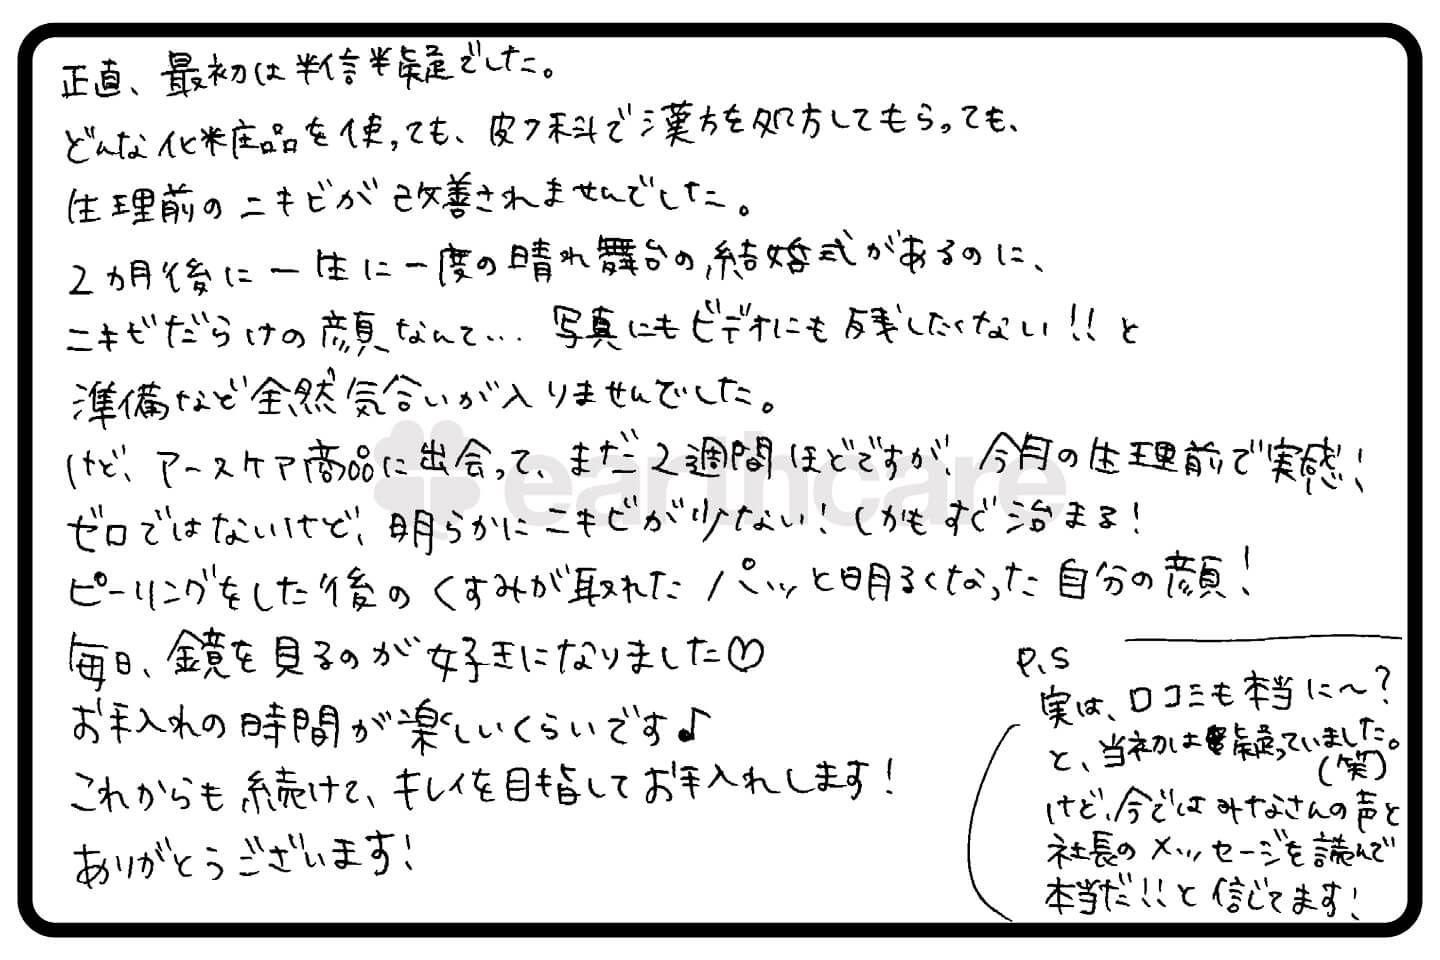 正直、最初は半信半疑でした。
どんな化粧品を使っても、皮フ科で漢方を処方してもらっても、
生理前のニキビが改善されませんでした。
2カ月後に一生に一度の晴れ舞台の結婚式があるのに、
ニキビだらけの顔なんて… 写真にもビデオにも残したくない!!と
準備など全然気合いが入りませんでした。
けど、アースケア商品に出会って、まだ2週間ほどですが、今月の生理前で実感!
ゼロではないけど、明らかにニキビが少ない!しかもすぐ治まる!
ピーリングをした後のくすみが取れたパッと明るくなった自分の顔!
毎日、鏡を見るのが好きになりました♡
お手入れの時間が楽しいくらいです♪
これからも続けて、キレイを目指してお手入れします!
ありがとうございます!
P.S
実は、口コミも本当に〜?
と、当初は疑っていました。
(笑)
けど、今ではみなさんの声と
社長のメッセージを読んで
本当だ!!と信じてます!
earthcare